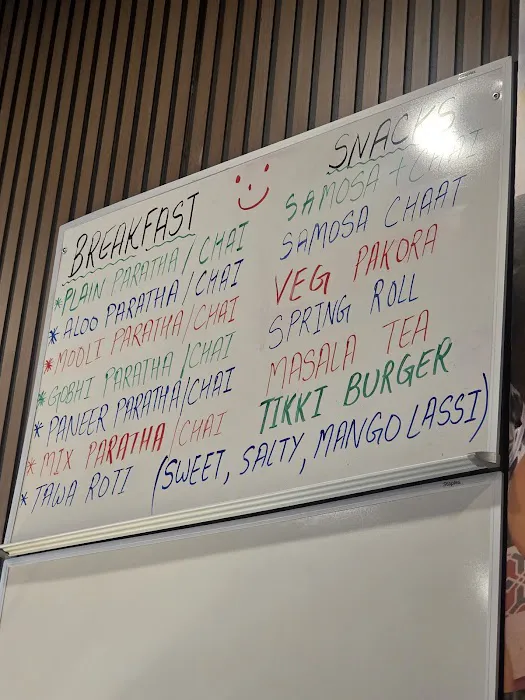 BREAKFAST
*PLAIN PARATHA / CHAI
*ALOO PARATHA / CHAI
*MOOLI PARATHA / CHAI
*GOBHI PARATHA / CHAI
*PANEER PARATHA / CHAI
*MIX PARATHA / CHAI
*TAWA ROTI
SNACKS
SAMOSA + CHAI
SAMOSA CHAAT
VEG PAKORA
SPRING ROLL
MASALA TEA
TIKKI BURGER
(SWEET, SALTY, MANGO LASSI)